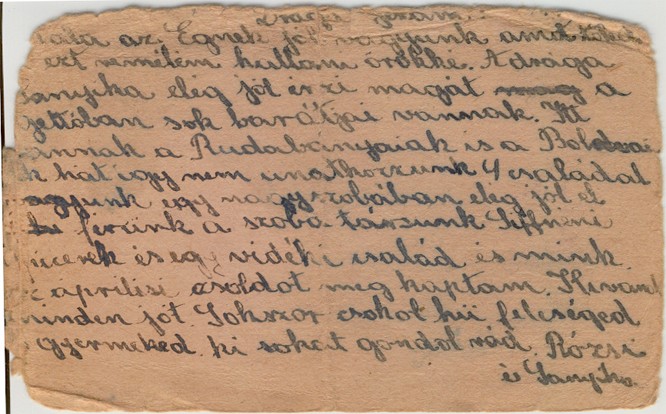 Drága Józsim!
Hála az Égnek jól vagyunk amit
ezt remélem hallani örökke. A drága
Sanyika elég jól érzi magát a
gettóban sok barátjai vannak. Itt
vannak a Rudabányaiak is a Boldvai
k hat igy nem unatkozzunk 4 családal
vagyunk egy nagy szobában elég jól el
ferünk a szoba társunk Siffneni
ucerek és egy vidéki család és mink.
aprilisi zsoldot meg kaptam. Kivant
minden jot. Sokszor csokol hii feleséged
gyermeked. ki sokat gondol rád. Rózsi
és Sanyika.